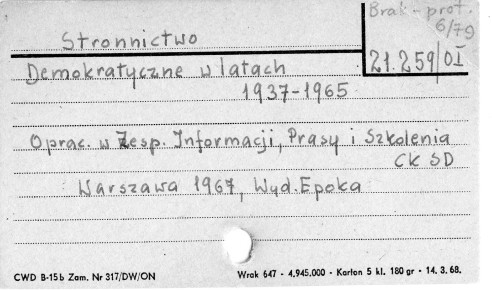 Brak - prot.
6/79
Stronnictwo
21.259/OI
Demokratyczne w latach
1937-1965
Oprac. w Zesp. Informacji, Prasy i Szkolenia
CK SD
Warszawa 1967, Wyd. Epoka
CWD B-15b Zam. Nr 317/DW/ON Wrak 647 - 4,945.000 - Karton 5 kl. 180 gr - 14. 3. 68.